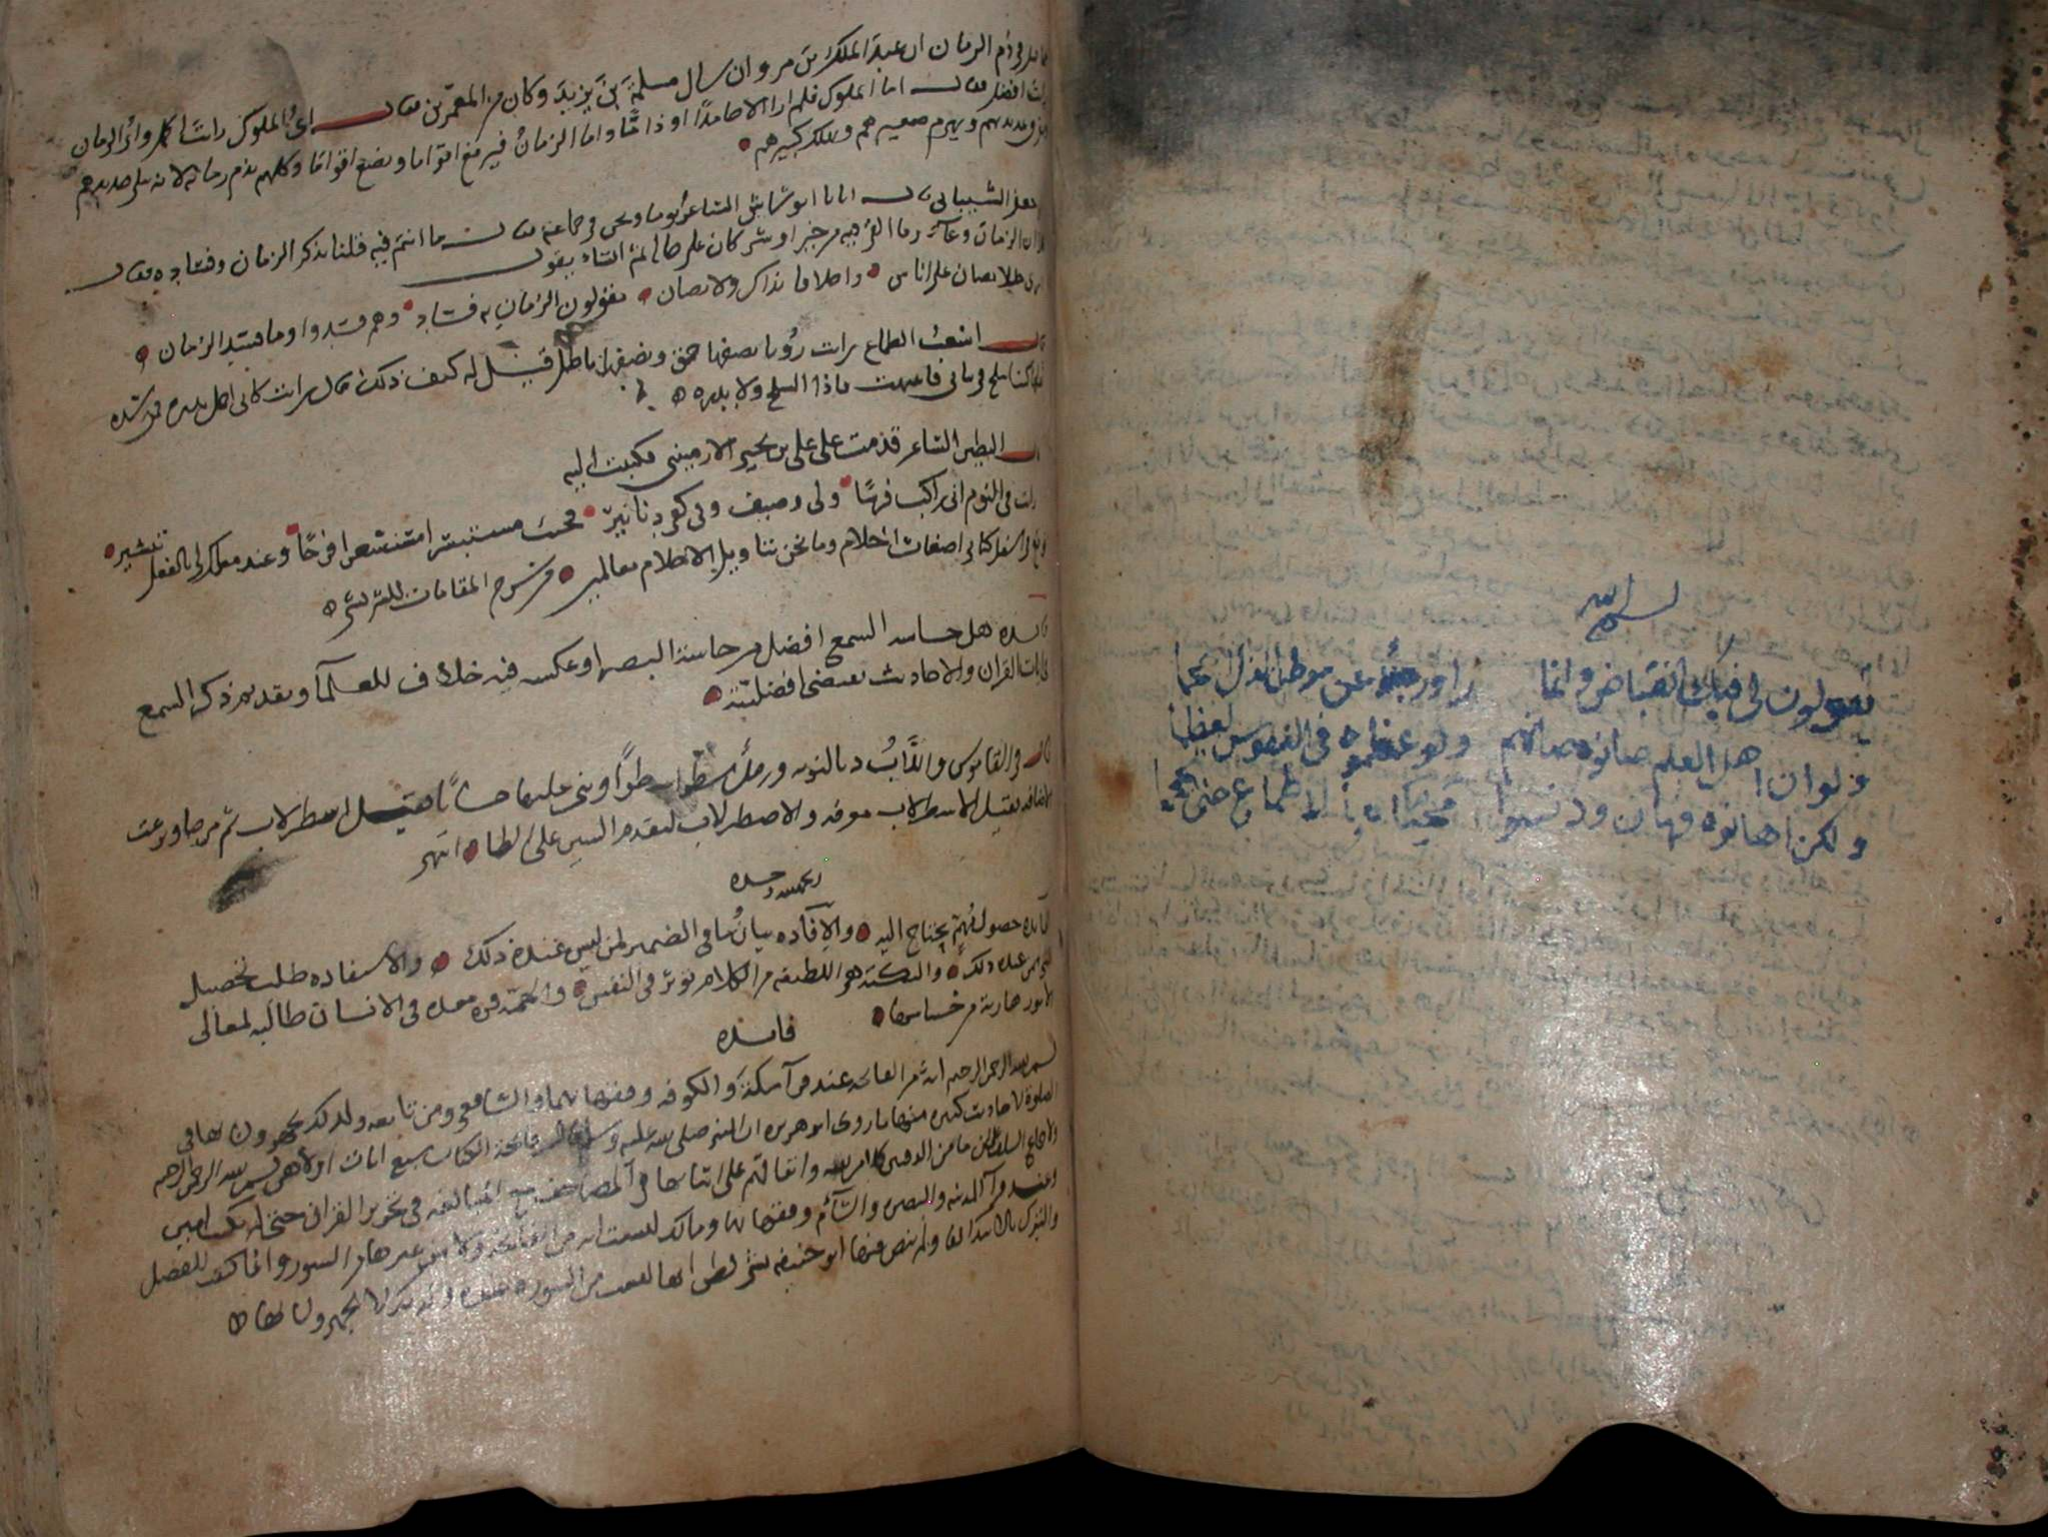 بسم الله
يقولون لي فيك انقباض وانما راو رجلا عن موطن الذل احجما
ولو ان اهل العلم صانوه صانهم ولو عظموه في النفوس لعظما
ولكن اهانوه فهان ودنسوا محياه بالاطماع حتى تجهما
في ذم الزمان ان عبد الملك بن مروان سال مسلمة بن يزيد وكان من المعمرين فقال اي الملوك رايت اكمل واي الزمان
رايت افضل فقال اما الملوك فلم ار الا حامدا او ذاما واما الزمان فيرفع اقواما ويضع اقواما وكلهم يذم زمانه لانه يبلي جديدهم
ويهرم صغيرهم ويهلك كبيرهم
الشيباني قال اتانا ابو شاش الشاعر يوما ونحن في جماعة فقال ما انتم فيه قلنا نذكر الزمان وفساده فقال
الزمان وعاء وما القي فيه من خير او شر كان على حاله ثم انشاء يقول
يصان على اناس واخلاقا تداس ولا تصان يقولون الزمان به فساد وهم فسدوا وما فسد الزمان
قال اشعب الطماع رايت رؤيا نصفها حق ونصفها باطل قيل له كيف ذلك قال رايت كاني احمل بدرة فمن شدة
كنت اسلح في ثيابي فانتبهت فاذا السلح ولا بدره
قال البطين الشاعر قدمت على علي بن يحيى الارميني فكتبت اليه
رايت في النوم اني راكب فرسا ولي وصيف وفي كفي دنانير فجئت مستبشرا مستشعرا فرحا وعند مثلك لي بالفعل تبشير
فوقع في اسفل كتابي اضغاث احلام وما نحن بتاويل الاحلام بعالمين من شرح المقامات للشريشي
فائده هل حاسة السمع افضل من حاسة البصر او عكسه فيه خلاف للعلماء وتقديم ذكر السمع
في ايات القران والاحاديث يقتضي افضليته
قال في القاموس واللاب د بالنوبه ورجل سطر اسطرا وبنى عليها حسابا فقيل اسطرلاب ثم مزجا ونزعت
الاضافه فقيل الاسطرلاب معرفه والاصطرلاب لتقدم السين على الطا انتهى
الفائده حصول مهم يحتاج اليه والافاده بيان ما في الضمير لمن ليس عنده ذلك والاستفاده طلب تحصيل
ذلك والنكتة هو اللطيفه من الكلام تؤثر في النفس والهمة قوه معده في الانسان طالبه لمعالي
الامور هاربة من خساسها
فائده
بسم الله الرحمن الرحيم اية من الفاتحه عند قرآء مكة والكوفه وفقهائهما والشافعي ومن تابعه ولذلك يجهرون بها في
الصلوة لاحاديث كثيره منها ما روى ابو هريره ان النبي صلى الله عليه وسلم قال فاتحة الكتاب سبع ايات اولاهن بسم الله الرحمن الرحيم
ما بين الدفتين كلام الله واتفاقهم على اثباتها في المصاحف مع المبالغه في تجريد القران حتى لم يكتب امين
وعند قرآء المدينه والبصره والشام وفقهائها ومالك ليست اية من الفاتحه ولا من غيرها من السور وانما كتبت للفصل
والتبرك بالابتدا بها ولم ينص فيها ابو حنيفه بشي فظن انها ليست من السوره عنده ولذلك لا يجهرون بها